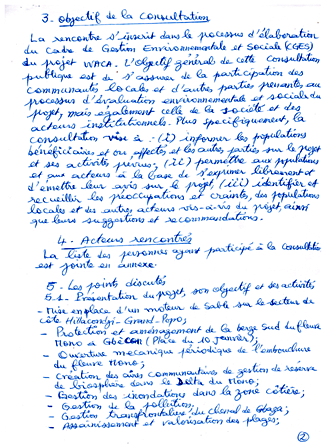 3. Objectif de la consultation
La rencontre s'inscrit dans le processus d'élaboration
du Cadre de Gestion Environnementale et Sociale (CGES)
du projet WACA. L'objectif général de cette Consultation
publique est de s'assurer de la participation des
communautés locales et d'autres parties prenantes au
processus d'évaluation environnementale et sociale du
projet, mais également celle de la société et des
acteurs institutionnels. Plus spécifiquement, la
consultation vise à : (i) informer les populations
bénéficiaires et/ou affectés et les autres parties sur le projet
et ses activités prévues, (ii) permettre aux populations
et aux acteurs à la base de s'exprimer librement et
d'émettre leur avis sur le projet, (iii) identifier et
recueillir les préoccupations et craintes, des populations
locales et des autres acteurs vis-à-vis du projet, ainsi
que leurs suggestions et recommandations.
4. Acteurs rencontrés
La liste des personnes ayant participé à la Consultation
est jointe en annexe.
5. Les points discutés
5.1. Présentation du projet, son objectif et ses activités
- Mise en place d'un moteur de Sable sur le secteur de
côte Hillacondji - Grand-Popo;
- Protection et aménagement de la berge Sud du fleuve
Mono à Gbècon (Place du 10 janvier);
- Ouverture mécanique périodique de l'embouchure
du fleuve Mono;
- Création des aires communautaires de gestion de réserve
de biosphère dans le Delta du Mono;
- Gestion des inondations dans la zone côtière;
- Gestion de la pollution;
- Gestion transfrontalière du chenal de Gbaga;
- Assainissement et valorisation des plages;
2